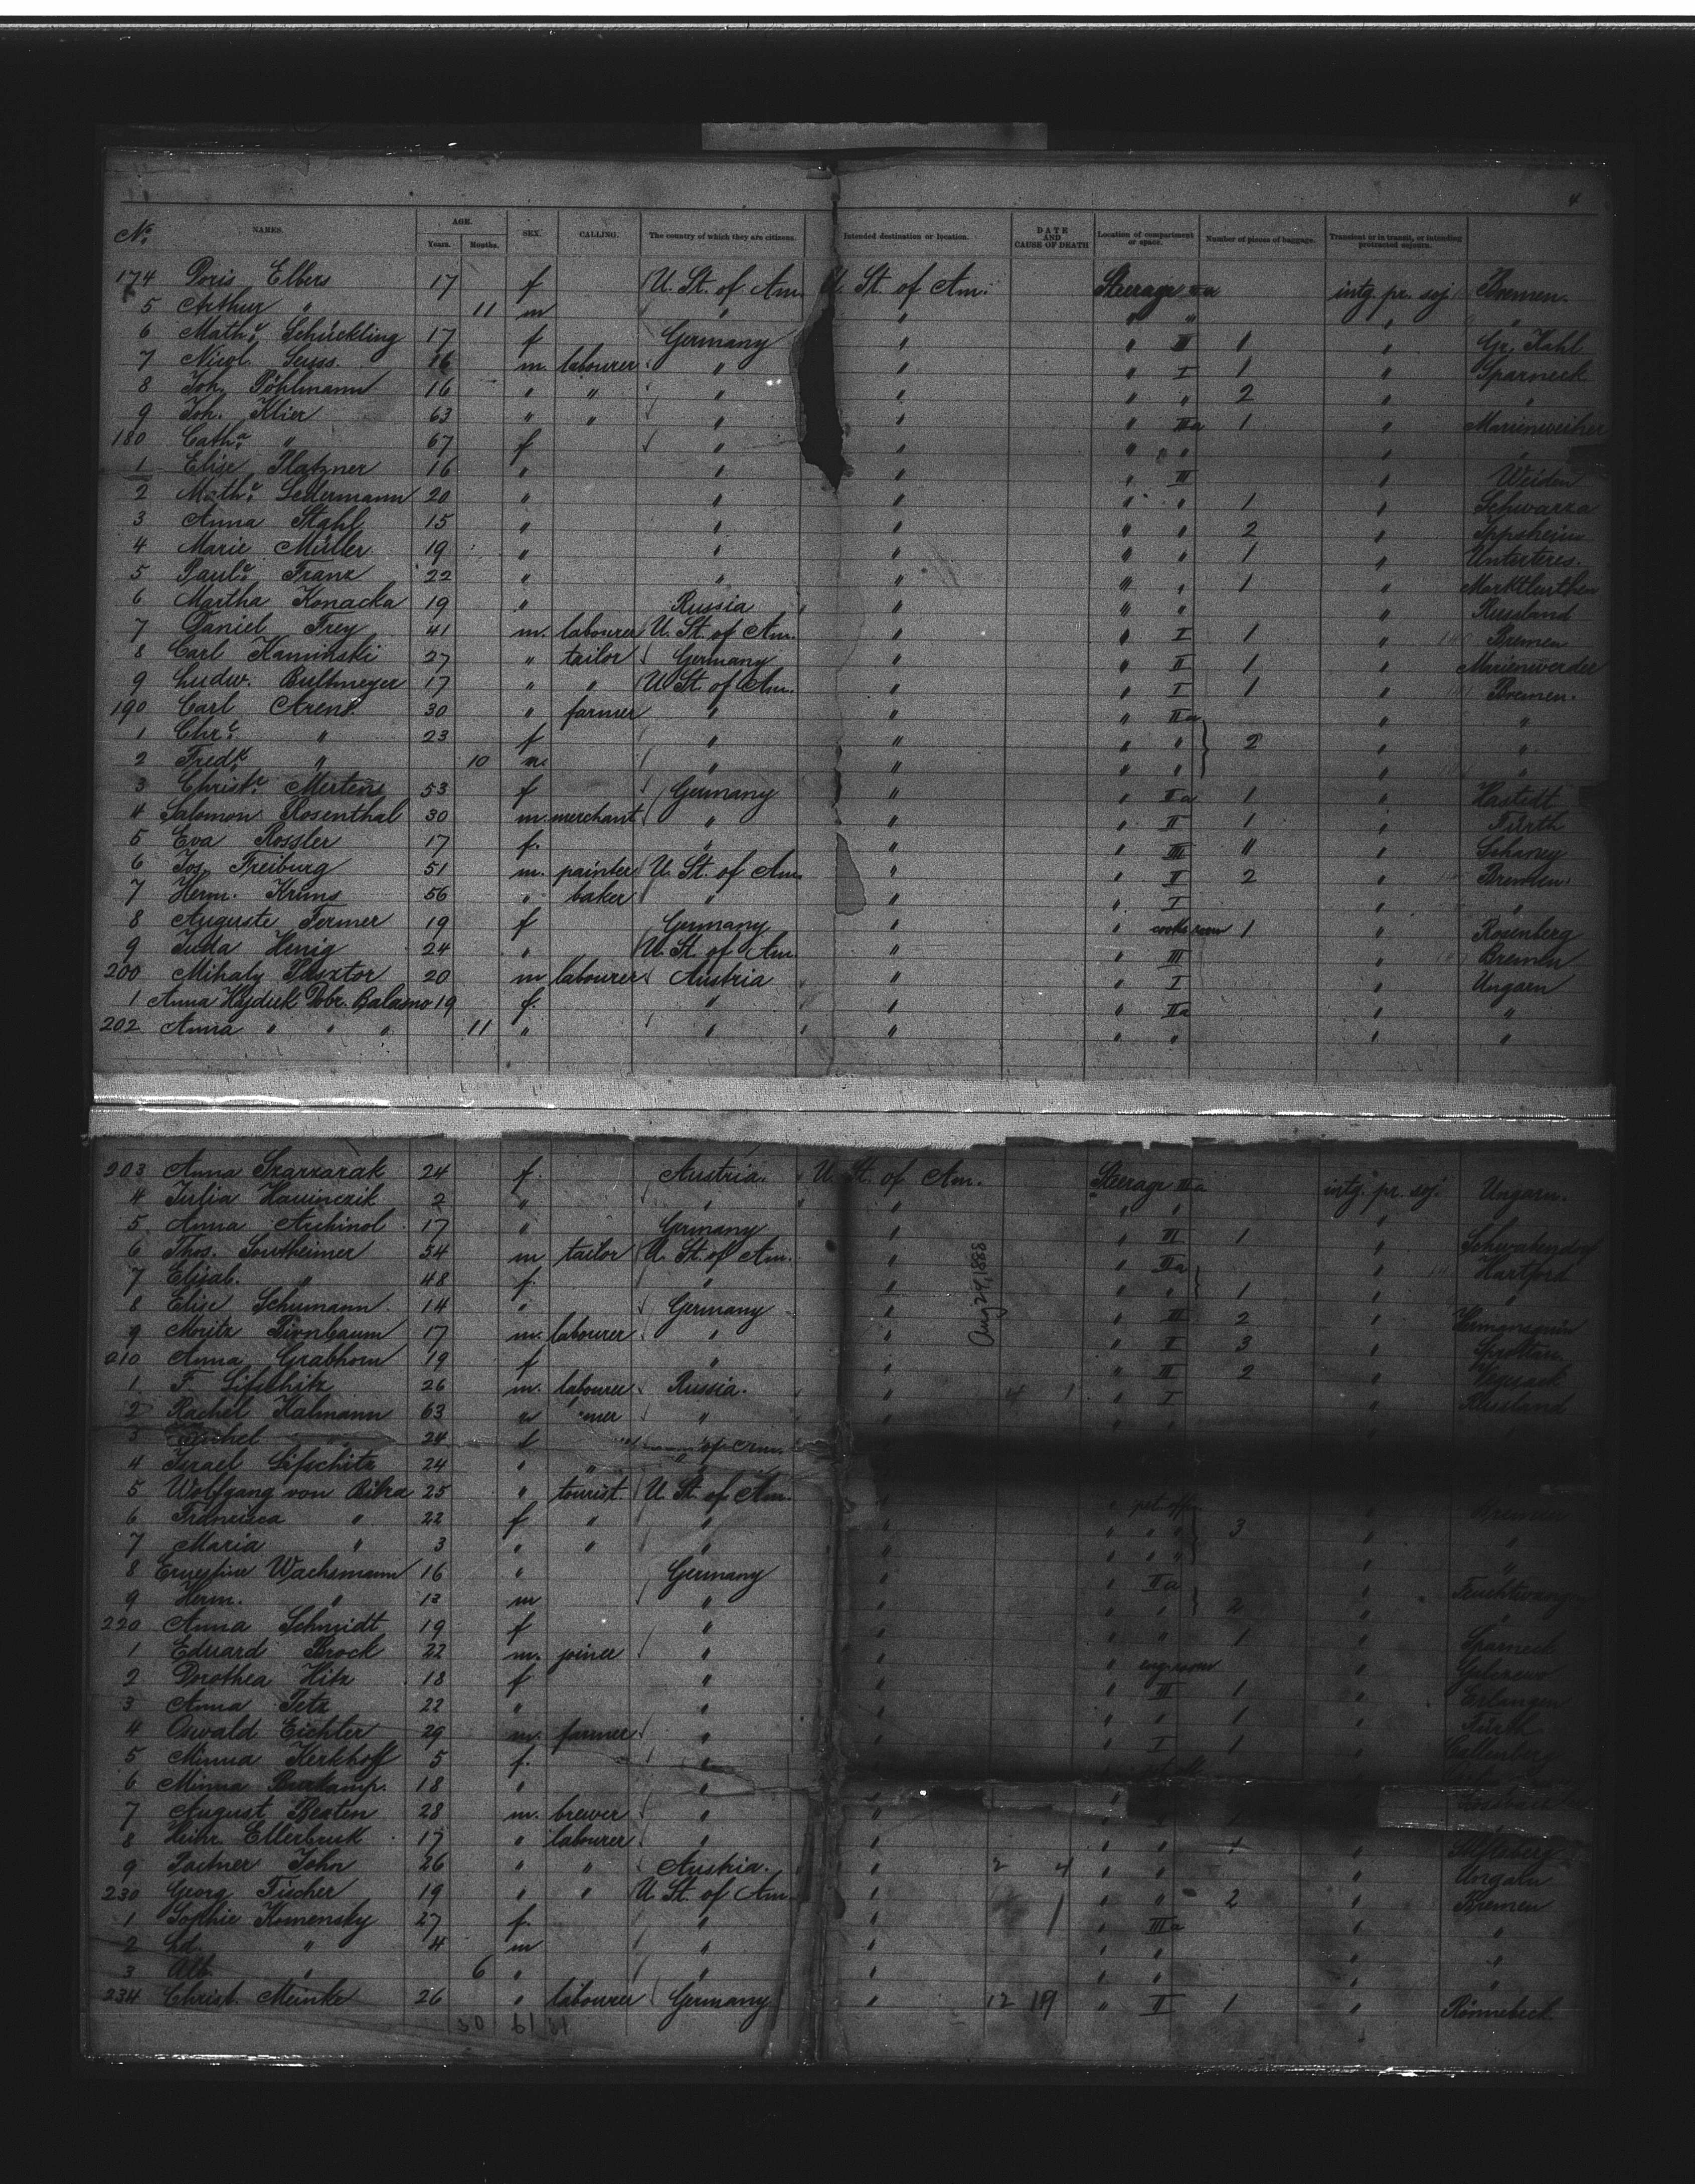 4
No. NAMES. AGE. Years. Months. SEX. CALLING. The country of which they are citizens. Intended destination or location. DATE AND CAUSE OF DEATH Location of compartment or space. Number of pieces of baggage. Transient or in transit, or intending protracted sojourn.
174 Doris Elbers 17 f U. St. of Am. U. St. of Am. Steerage intg. pr. soj. Bremen.
5 Arthur " 11 m " " " " " "
6 Mathe. Schückling 17 f Germany " " III 1 " Gr. Kahl
7 Nicol. Seuss 16 m. labourer " " " I 1 " Sparneck
8 Joh. Pöhlmann 16 " " " " " " 2 " "
9 Joh. Klier 63 " " " " " IIIa 1 " Marienweiher
180 Catha. " 67 f " " " " " "
1 Elise Platzner 16 " " " " III " Weiden
2 Mathe. Ledermann 20 " " " " " 1 " Schwarza
3 Anna Stahl 15 " " " " " 2 " Ippsheim
4 Marie Müller 19 " " " " " 1 " Unterteres.
5 Paule. Franz 22 " " " " " 1 " Marktleuthen
6 Martha Konacka 19 " Russia " " " " Russland
7 Daniel Frey 41 m. labourer U. St. of Am. " " I 1 " Bremen
8 Carl Kaminski 27 " tailor Germany " " II 1 " Marienwerder
9 Ludw. Bultmeyer 17 " " U. St. of Am. " " I 1 " Bremen.
190 Carl Arens 30 " farmer " " " IIa " "
1 Chre. " 23 f " " " " 2 " "
2 Fredk. " 10 m. " " " " " "
3 Christe. Mertens 53 f Germany " " IIa 1 " Hastedt
4 Salomon Rosenthal 30 m. merchant " " " II 1 " Fürth
5 Eva Rossler 17 f. " " " III " " Schaney
6 Jos. Freiburg 51 m. painter U. St. of Am. " " II 2 " Bremen
7 Herm. Krüms 56 " baker " " " I " "
8 Auguste Fermer 19 f Germany " " cooks room 1 " Rosenberg
9 Juda Henig 24 " U. St. of Am. " " III " Bremen
200 Mihaly Pluxtor 20 m labourer Austria " " I " Ungarn
1 Anna Hajduk Dobr. Balasno 19 f. " " " IIa " "
202 Anna " " " 11 " " " " " " "
203 Anna Szarzarak 24 f. Austria. U. St. of Am. Steerage IIa intg. pr. soj. Ungarn.
4 Julia Hauinczik 2 " " " " " "
5 Anna Archinol 17 " Germany " " III 1 "
6 Thos. Sontheimer 54 m tailor U. St. of Am. " " IIa " Hartford
7 Elisab. " 48 f. " " " " 1 " "
8 Elise Schumann 14 " Germany " " III 2 "
Aug 24, 1888
9 Moritz Birnbaum 17 m. labourer " " " II 3 " Sprottau
210 Anna Grabhorn 19 f " " " III 2 " Vegesack
1 F. Lifschitz 26 m. labourer Russia. " 4 1 " I " Russland
2 Rachel Kalmann 63 " "
3 24 f of Am.
4 Israel Lifschitz 24 " " "
5 Wolfgang von Bibra 25 " tourist U. St. of Am. " " " Bremen
6 Francisca " 22 f " " " " " " 3 " "
7 Maria " 3 " " " " " " " " "
8 Ernestine Wachsmann 16 " Germany " " IIa " Feuchtwangen
9 Herm. " 13 m " " " " 2 " "
220 Anna Schmidt 19 f " " " " 1 " Sparneck
1 Eduard Brock 22 m. joiner " " " eng. room "
2 Dorothea Hitz 18 f " " " III 1 " Erlangen
3 Anna Tetz 22 " " " " " 1 " Fürth
4 Oswald Eichler 29 m. farmer " " " I 1 " Callenberg
5 Minna Kerkhoff 5 f. " "
6 Minna 18 " " "
7 August Bexten 28 m. brewer " "
8 Heinr. Ellerbruk 17 " labourer " " " " 1 "
9 Pactner John 26 " " Austria. " 2 4 " " " Ungarn
230 Georg Fischer 19 " " U. St. of Am. " 1 " " 2 " Bremen
1 Sophie Komensky 27 f. " " " IIIa " "
2 Ed. " 4 m " " " " " "
3 Alb. " 6 " " " " " " "
234 Christ. Meinke 26 " labourer Germany " 12 19 " II 1 " Rönnebeck.
30 61 31